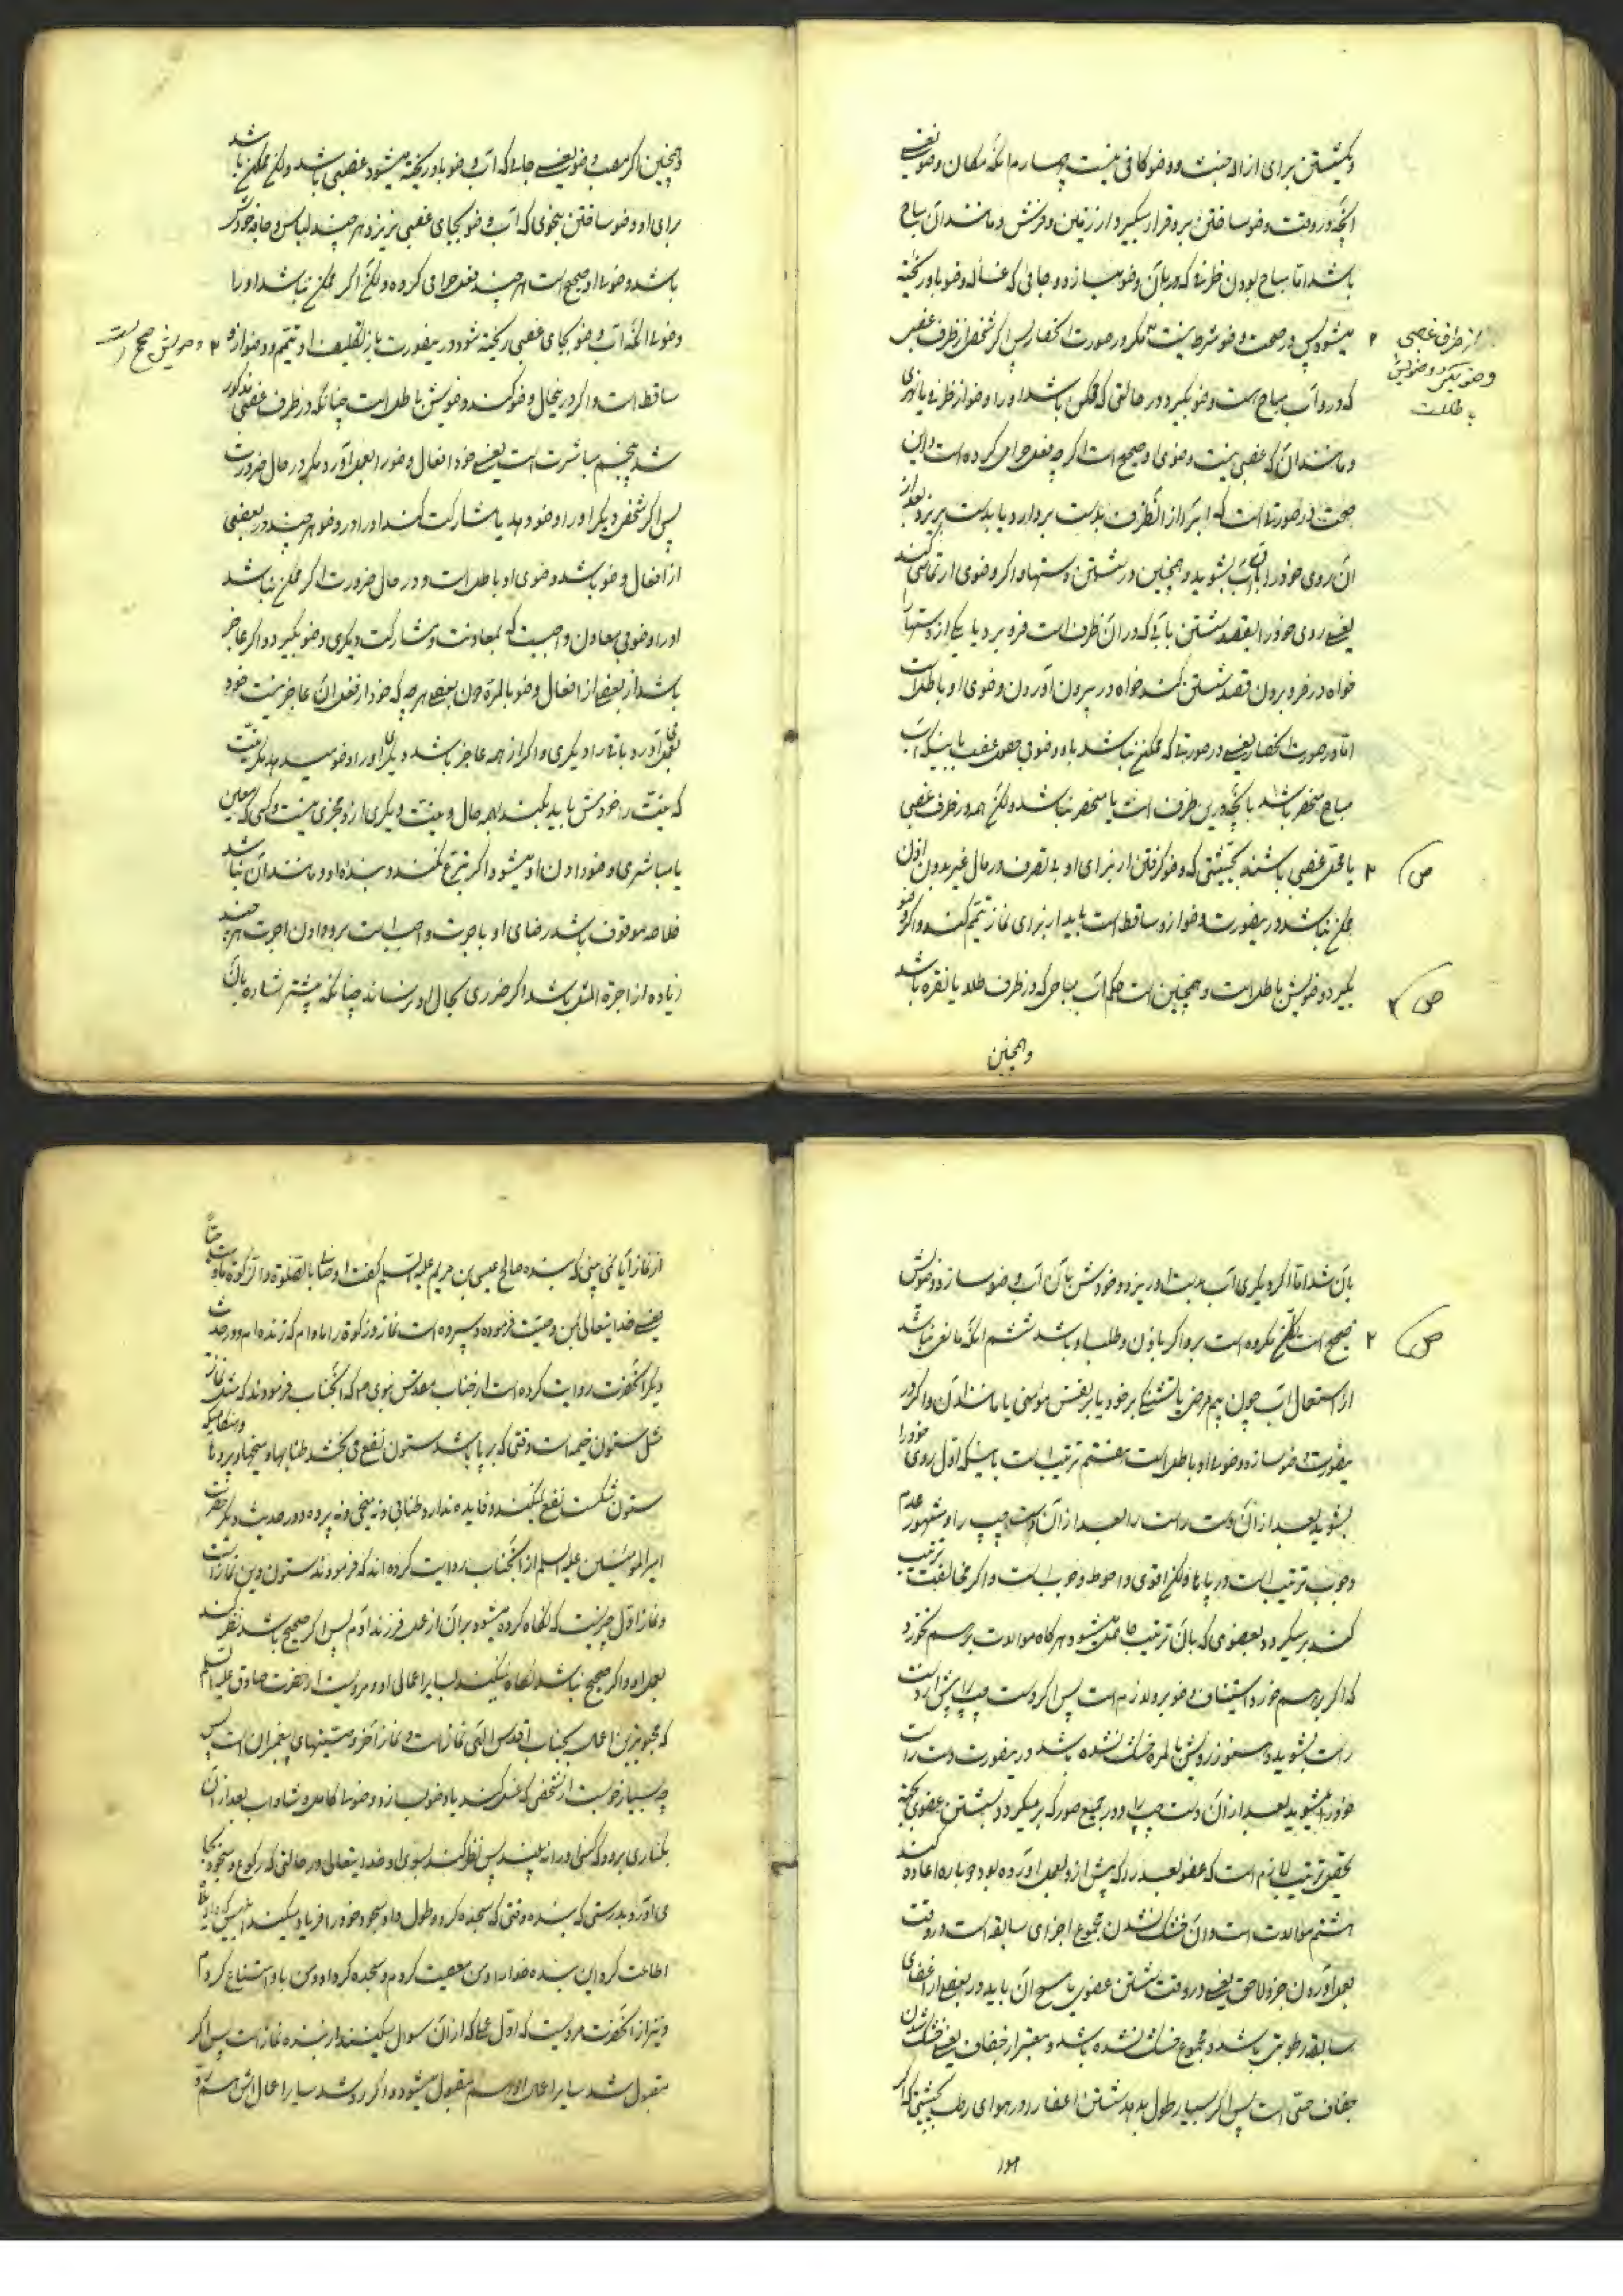 و یک شستن برای ازاله خبث و وضو کافی نیست چهارم آنکه مکان وضو یعنی
آنچه در وقت وضو ساختن بر او قرار میگیرد از زمین و فرش و مانند آن مباح
باشد اما مباح بودن ظرفی که در آن وضو میسازد و جائی که غساله وضو باو ریخته
میشود پس در صحت وضو شرط نیست مگر در صورت انحصار پس اگر شخص از ظرف غصبی
که در او آب مباح است وضو بگیرد در حالتی که ممکن باشد او را وضو از ظرف یا نهری
و مانند آن که غصبی نیست وضوی او صحیح است اگر چه فعل حرامی کرده است و این
صحت در صورتی است که آب را از آن ظرف بدست بردارد یا بدست بریزد بعد از
آن روی خود را بآن آب بشوید و همچنین در شستن دستها و اگر وضوی ارتماسی کند
یعنی روی خود را بقصد شستن بآبی که در آن ظرف است فرو برد یا یکی از دستها را
خواه در فرو بردن قصد شستن کند خواه در بیرون آوردن وضوی او باطل است
اما در صورت انحصار یعنی در صورتی که ممکن نباشد باو وضوی بدون غصب باینکه آب
مباح منحصر باشد بآنچه در این ظرف است یا منحصر نباشد ولکن همه در ظرف غصبی
یا محل غصبی باشند بحیثیتی که وضو گرفتن از برای او بی تصرف در مال غیر بدون اذن
ممکن نباشد در اینصورت وضو از او ساقط است باید از برای نماز تیمم کند و اگر وضو
بگیرد وضویش باطل است و همچنین است حکم آب مباحی که در ظرف طلا یا نقره باشد
و همچنین
از ظرف غصبی
وضو بگیرد وضویش
باطلست
ص
ص
و همچنین اگر مصب وضو یعنی جائی که آب وضو باو ریخته میشود غصبی باشد ولکن ممکن باشد
برای او وضو ساختن بنحوی که آب وضو بجای غصبی نریزد هر چند لباس و جامه خود تر
باشد وضوی او صحیح است هر چند فعل حرامی کرده ولکن اگر ممکن نباشد او را
وضو الا آنکه آب وضو بجای غصبی ریخته شود در اینصورت باز تکلیف او تیمم و وضو از او
ساقط است و اگر در اینحال وضو کند وضویش باطل است چنانکه در ظرف غصبی مذکور
شد پنجم مباشرت است یعنی خود افعال وضو را بعمل آورد مگر در حال ضرورت
پس اگر شخص دیگر او را وضو دهد یا مشارکت کند او را در وضو هر چند در بعضی
از افعال وضو باشد وضوی او باطل است و در حال ضرورت اگر ممکن نباشد
او را وضو بی معاون واجبست که بمعاونت و مشارکت دیگری وضو بگیرد و اگر عاجز
باشد از بعضی از افعال وضو بالمره چون بعضی هر چه که خود از فعل آن عاجز نیست خود
بعمل آورد باقی را دیگری و اگر از همه عاجز باشد دیگری او را وضو میدهد مگر نیت
که نیت را خودش باید بکند بهر حال و نیت دیگری از او مجزی نیست و کسی که معین
یا مباشری وضو دادن او میشود اگر تبرع نکند و بنده او و مانند آن نباشد
خلاصه موقوف باشد رضای او باجرت واجبست بر او دادن اجرت هر چند
زیاده از اجرة المثل باشد اگر ضرری بحال او نرساند چنانکه پیشتر اشاره بآن
وضویش صحیح است
بآن شد اما اگر دیگری آب بدست او ریزد و خودش بآن آب وضو سازد وضویش
صحیح است لکن مکروه است بر او اگر باذن و طلب او باشد ششم آنکه مانعی نباشد
از استعمال آب چون بیم مرض یا تشنگی بر خود یا بر نفس مؤمنی یا مانند آن و اگر در
اینصورت وضو سازد وضوی او باطل است هفتم ترتیب است باینکه اول روی خود را
بشوید بعد از آن دست راست را بعد از آن دست چپ را و مشهور عدم
وجوب ترتیب است در پاها ولکن اقوی و احوط وجوب است و اگر مخالفت ترتیب
کند بر میگردد بعضوی که بآن ترتیب حاصل میشود هر گاه موالات بر هم نخورد
که اگر بر هم خورد استیناف وضو بر او لازم است پس اگر دست چپ را پیش از دست
راست بشوید و هنوز رویش بالمره خشک نشده باشد در اینصورت دست راست
خود را میشوید بعد از آن دست چپ را و در جمیع صور که بر میگردد بشستن عضوی بجهة
تحقیق ترتیب لازم است که عضو بعد را که پیش از او بعمل آورده بود دوباره اعاده کند
هشتم موالات است و آن خشک نشدن مجموع اجزای سابقه است در وقت
بعمل آوردن جزو لاحق یعنی در وقت شستن عضوی یا مسح آن باید در بعضی از اعضای
سابقه رطوبتی باشد و مجموع خشک نشده باشد و معتبر از جفاف یعنی خشک شدن
جفاف حسی است پس اگر بسیار طول بدهد شستن اعضا را در هوای رطب بحیثیتی که اگر
هوا
ص
از نماز آیا نمی بینی که بنده صالح عیسی بن مریم علیه السلام گفت اوصانی بالصلوة و الزکوة ما دمت حیا
یعنی خدایتعالی بمن وصیت فرموده و سپرده است نماز و زکوة را مادام که زنده ام و در حدیث
دیگر آنحضرت روایت کرده است از جناب مقدس نبوی ص که آنجناب فرمودند که مثل نماز
مثل ستون خیمه است وقتی که بر پا باشد ستون نفع می بخشد طنابها و میخها و پردها و هنگامیکه
ستون شکست نفع نمیکند و فایده ندارد طنابی و نه میخی و نه پرده و در حدیث دیگر حضرت
امیر المومنین علیه السلام از آنجناب روایت کرده اند که فرمودند ستون دین نماز است
و نماز اول چیزیست که نگاه کرده میشود بر آن از عمل فرزند آدم پس اگر صحیح باشد نظر کنند
بعمل او و اگر صحیح نباشد نگاه نمیکنند بسایر اعمال او و مرویست از حضرت صادق علیه السلام
که محبوبترین اعمال بجناب اقدس الهی نماز است و نماز آخر وصیتهای پیغمبران است پس
چه بسیار خوبست از شخصی که غسل کند یا وضو بسازد و وضوی کامل و شاداب بعد از آن
بکناری برود که کسی او را نه بیند پس نظر کند بسوی او خدایتعالی در حالتی که رکوع و سجود بجا
می آورد بدرستی که بنده وقتی که سجده کرد و طول داد سجود خود را فریاد میکند ابلیس که وای
اطاعت کرد این بنده خدا را و من معصیت کردم و سجده کرد او و من باو امتناع کردم
و نیز از آنحضرت مرویست که اول عملی که از آن سوال میکنند از بنده نماز است پس اگر
مقبول شد سایر اعمال او هم مقبول میشود و اگر رد شد سایر اعمال اش هم رد